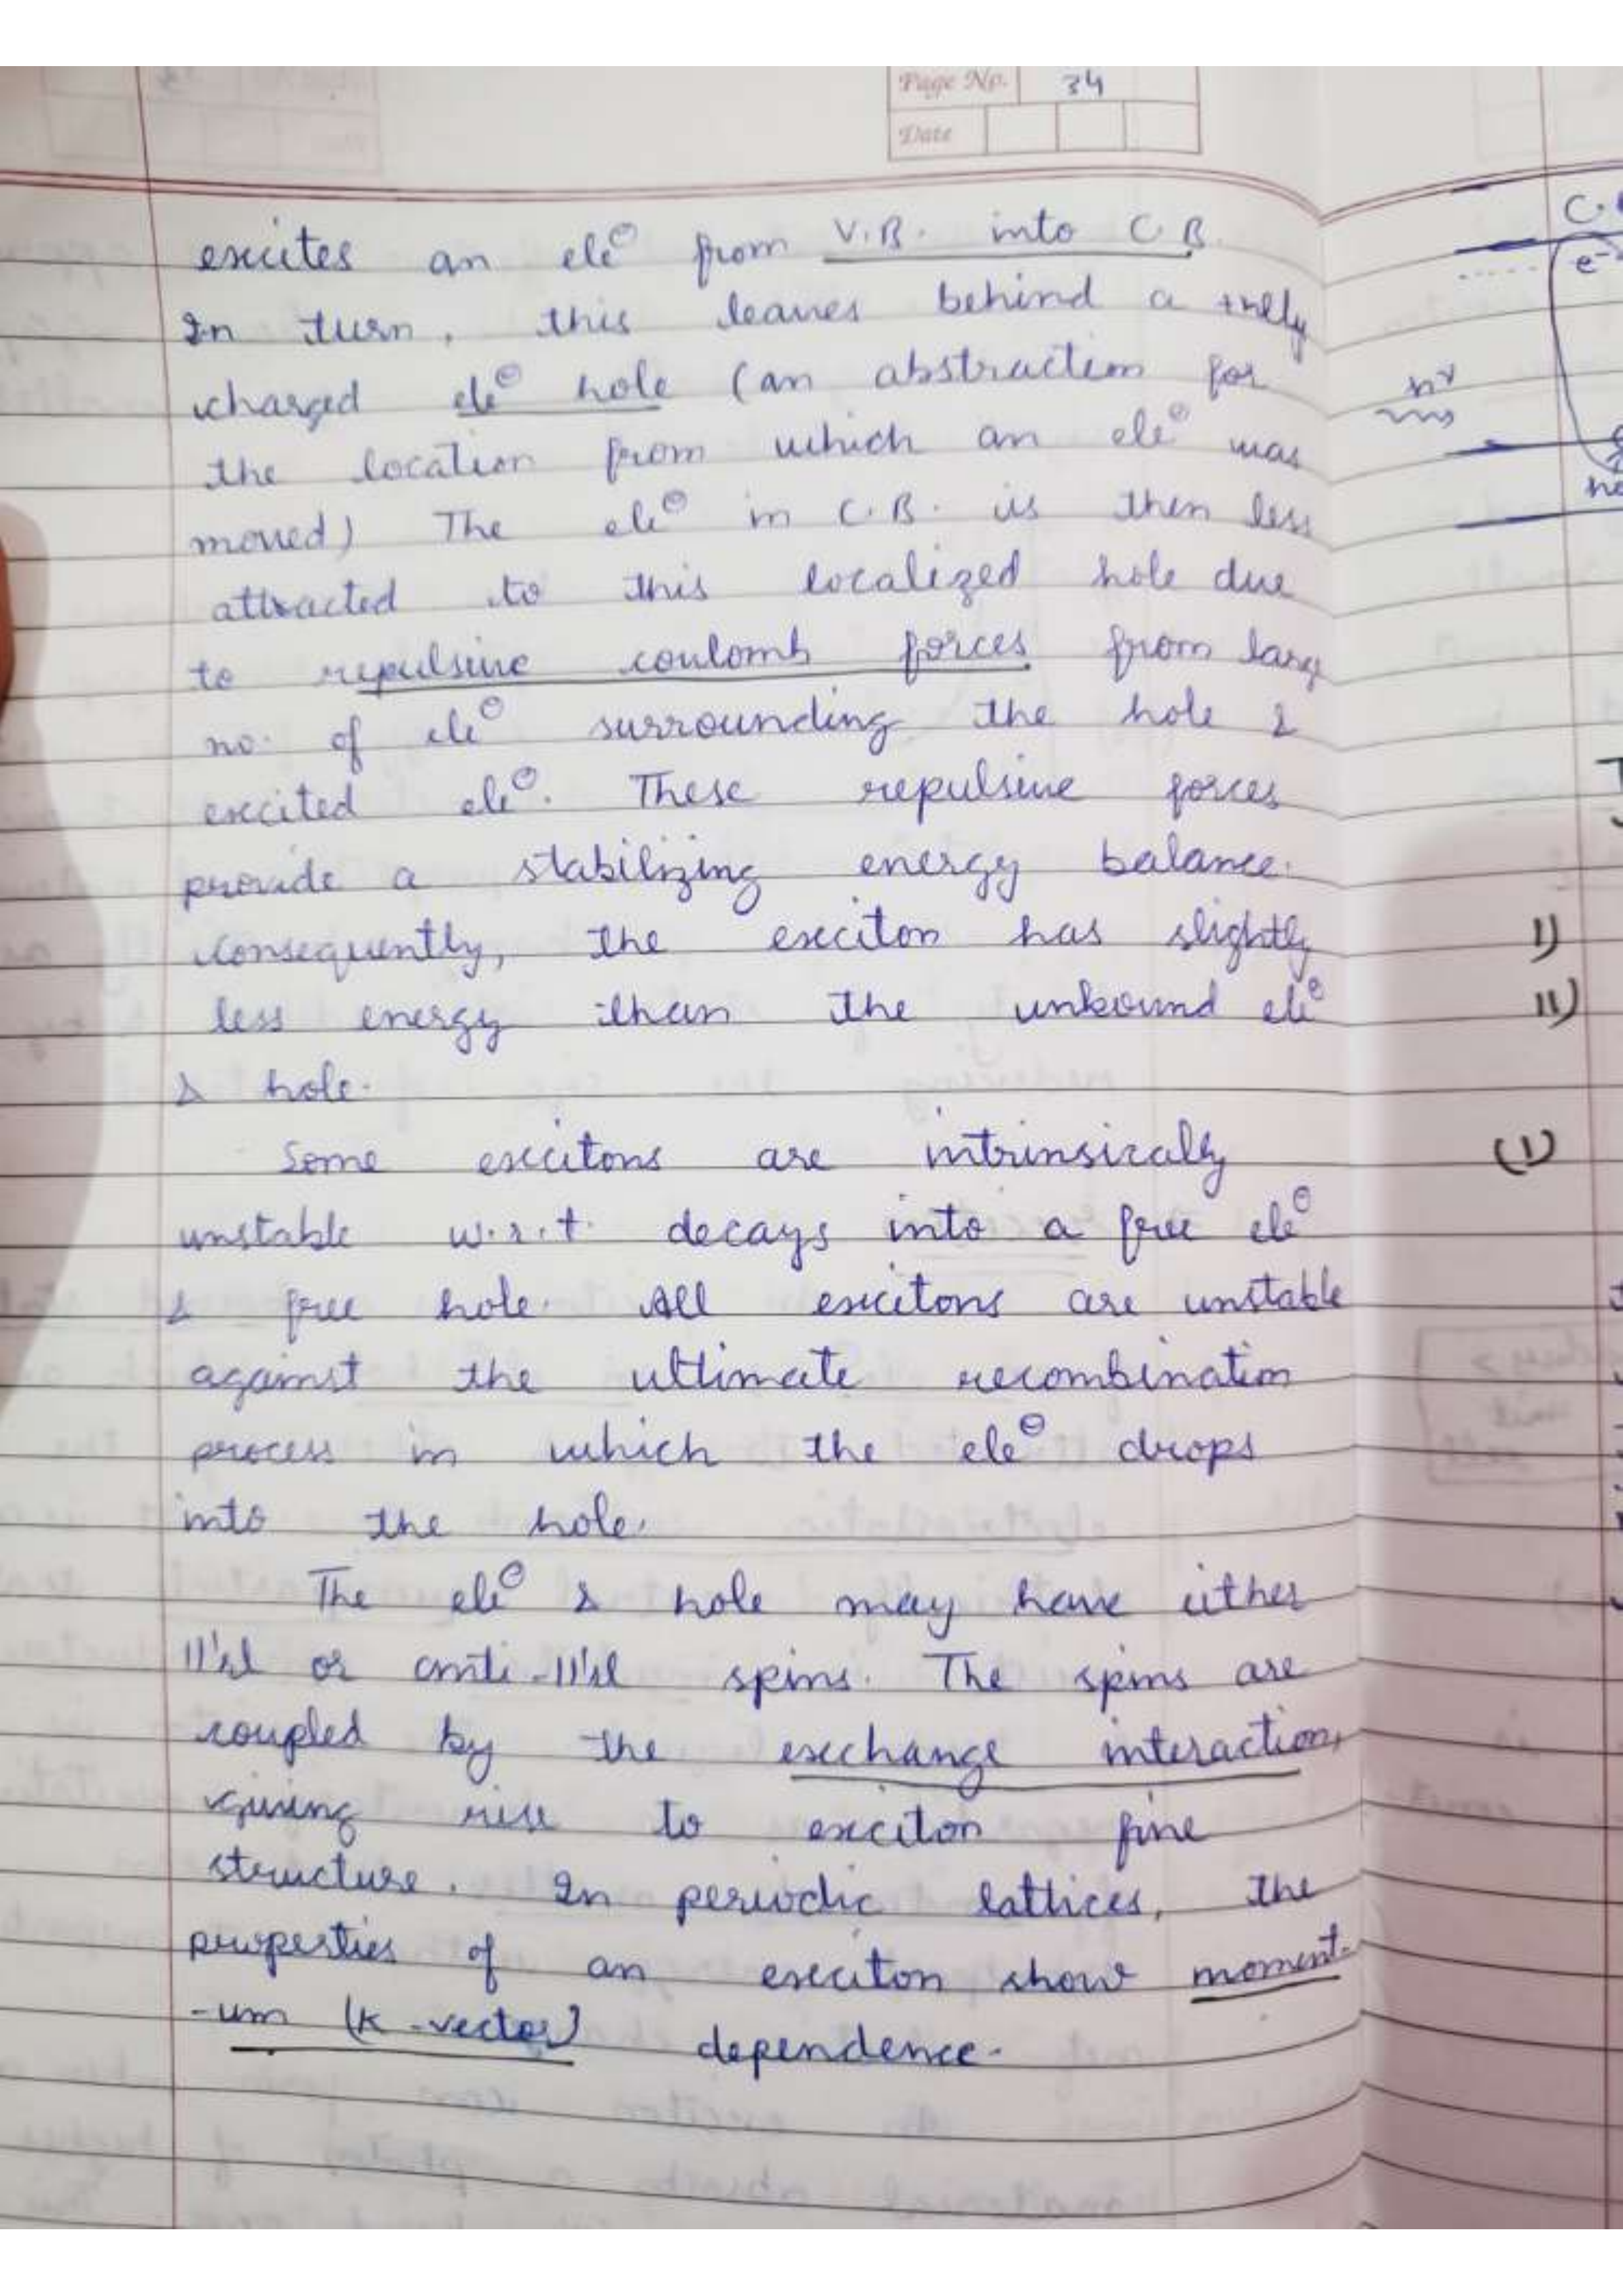 Page No. 34
Date
excites an ele⊖ from V.B. into C.B.
In turn, this leaves behind a +vely
charged ele⊖ hole (an abstraction for
the location from which an ele⊖ was
moved) The ele⊖ in C.B. is then less
attracted to this localized hole due
to repulsive coulomb forces from larg
no. of ele⊖ surrounding the hole &
excited ele⊖. These repulsive forces
provide a stabilizing energy balance.
Consequently, the exciton has slightly
less energy than the unbound ele⊖
& hole.
Some excitons are intrinsically
unstable w.r.t. decays into a free ele⊖
& free hole. All excitons are unstable
against the ultimate recombination
process in which the ele⊖ drops
into the hole.
The ele⊖ & hole may have either
11'el or anti-11'el spins. The spins are
coupled by the exchange interaction,
giving rise to exciton fine
structure. In periodic lattices, the
properties of an exciton show moment-
-um (K-vector) dependence.
C.
e-
hν
ho
I)
II)
(I)